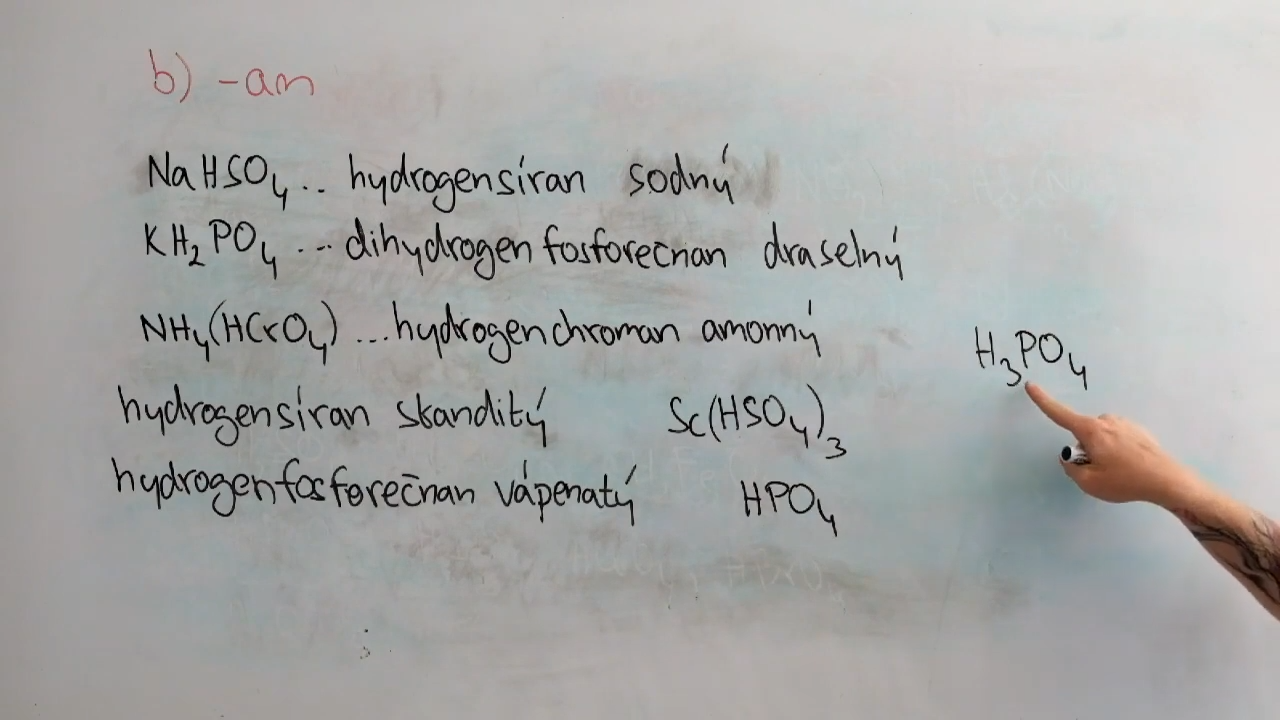 b) -an
NaHSO₄ .. hydrogensíran sodný
KH₂PO₄ ... dihydrogenfosforečnan draselný
NH₄(HCrO₄) ... hydrogenchroman amonný
H₃PO₄
hydrogensíran skanditý Sc(HSO₄)₃
hydrogenfosforečnan vápenatý HPO₄